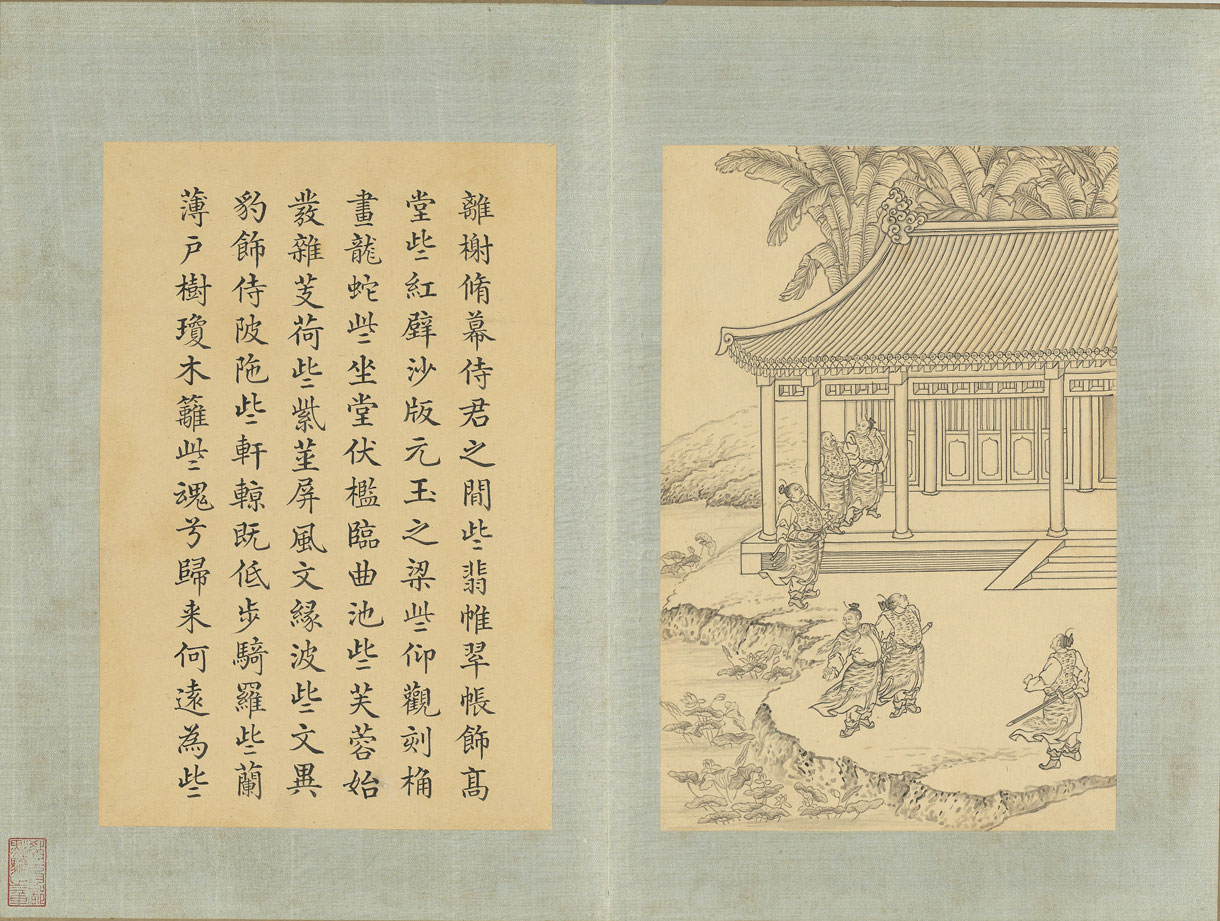 離榭脩幕侍君之閒些翡帷翠帳飾髙
堂些紅壁沙版元玉之梁些仰觀刻桷
畫龍蛇些坐堂伏檻臨曲池些芙蓉始
發雜芰荷些紫莖屏風文緣波些文異
豹飾侍陂陁些軒輬既低步騎羅些蘭
薄戶樹瓊木籬些魂兮歸来何遠為些